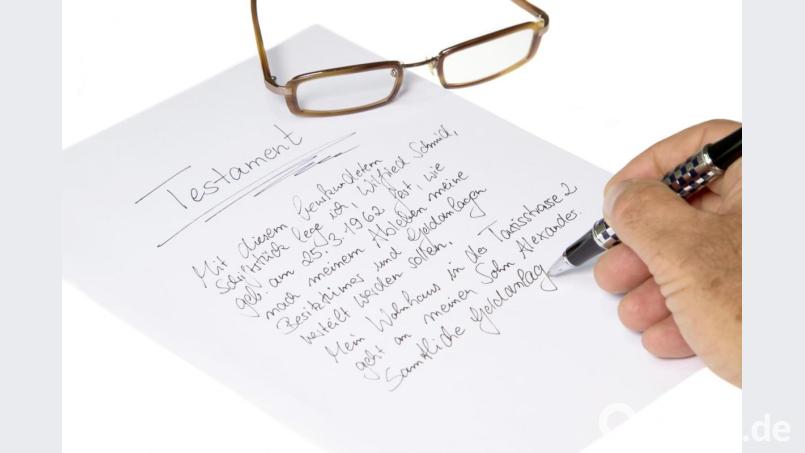 Testament
Mit diesem beurkundetem
Schriftstück lege ich, Wilfried Schmid,
geb. am 25.3.1962 fest, wie
nach meinem Ableben meine
Besitztümer und Geldanlagen
verteilt werden sollen.
Mein Wohnhaus in der Taxisstrasse 2
geht an meinen Sohn Alexander.
Sämtliche Geldanlag
.de